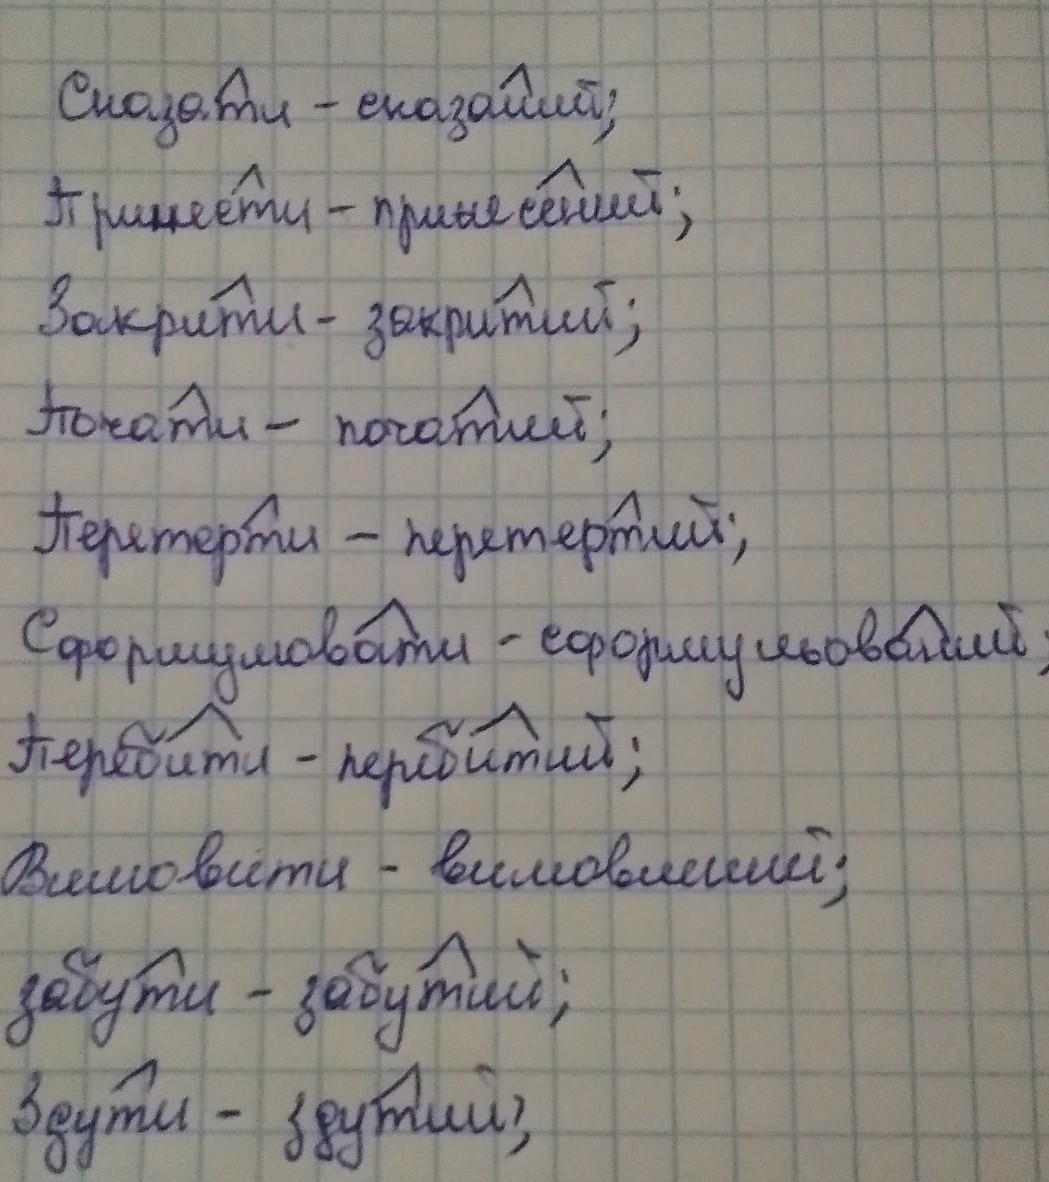 Сказати - сказаний;
Принести - принесений;
Закрити - закритий;
Почати - початий;
Перетерти - перетертий;
Сформулювати - сформульований;
Перебити - перебитий;
Вимовити - вимовлений;
забути - забутий;
Здути - здутий;